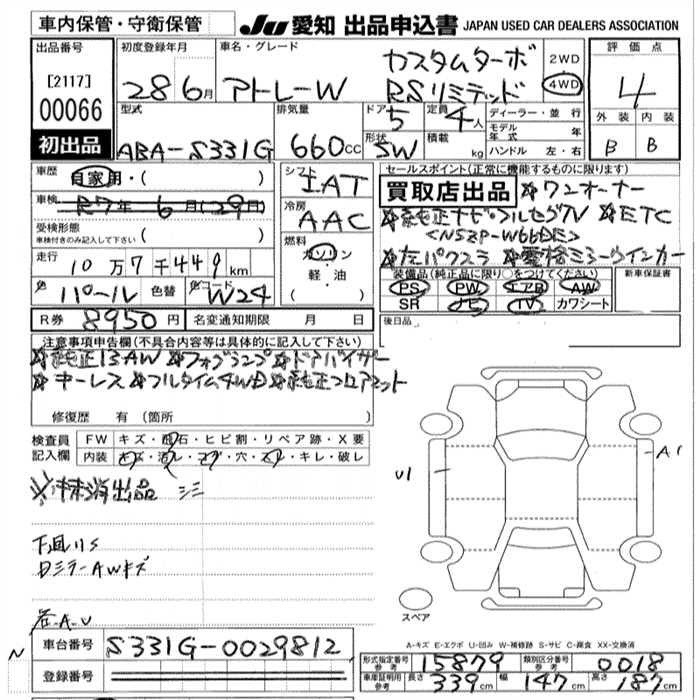 車内保管・守衛保管 JU 愛知 出品申込書 JAPAN USED CAR DEALERS ASSOCIATION
出品番号 初度登録年月 車名・グレード 評価点
[2117] 28 6月 アトレーW カスタムターボ 2WD 4
00066 RSリミテッド 4WD
初出品 型式 排気量 ドア 定員 ディーラー・並行 外装 内装
ABA-S331G 660cc 5 4人 モデル年式 年 B B
形状 SW 積載 kg ハンドル 左・右
車歴 自家用・( ) シフト IAT セールスポイント(正常に機能するものに限ります)
車検 R7年 6月(29月) 冷房 AAC 買取店出品 ☆ワンオーナー
受検形態 ( ) ☆純正ナビフルセグTV ☆ETC
車検付きのみ記入して下さい 燃料 <NSZP-W66DE>
走行 10万7千449km ガソリン ☆左パワスラ ☆電格ミラーウインカー
軽・油 装備品(純正品に限り○をつけてください) 新車保証書
色 パール 色替 色コード W24 ( ) PS PW エアB AW
SR ナビ TV カワシート
R券 8950円 名変通知期限 月 日 後日品
注意事項申告欄(不具合内容等は具体的に記入して下さい)
☆純正13AW ☆フォグランプ ☆ドアバイザー
☆キーレス ☆フルタイム4WD ☆純正フロアマット
修復歴 有(箇所
検査員記入欄 FW キズ・飛石・ヒビ割・リペア跡・X要
内装 キズ・汚レ・コゲ・穴・スレ・キレ・破レ
U1 A1
出品 シミ
下廻りS
DミラーAWキズ
スペア
A-キズ E-エクボ U-凹み W-補修跡 S-サビ C-腐食 XX-交換済
車台番号 S331G-0029812
登録番号
形式指定番号 参考 15879 類別区分番号 参考 0018
車庫証明用 参考 長さ 339cm 幅 147cm 高さ 187cm